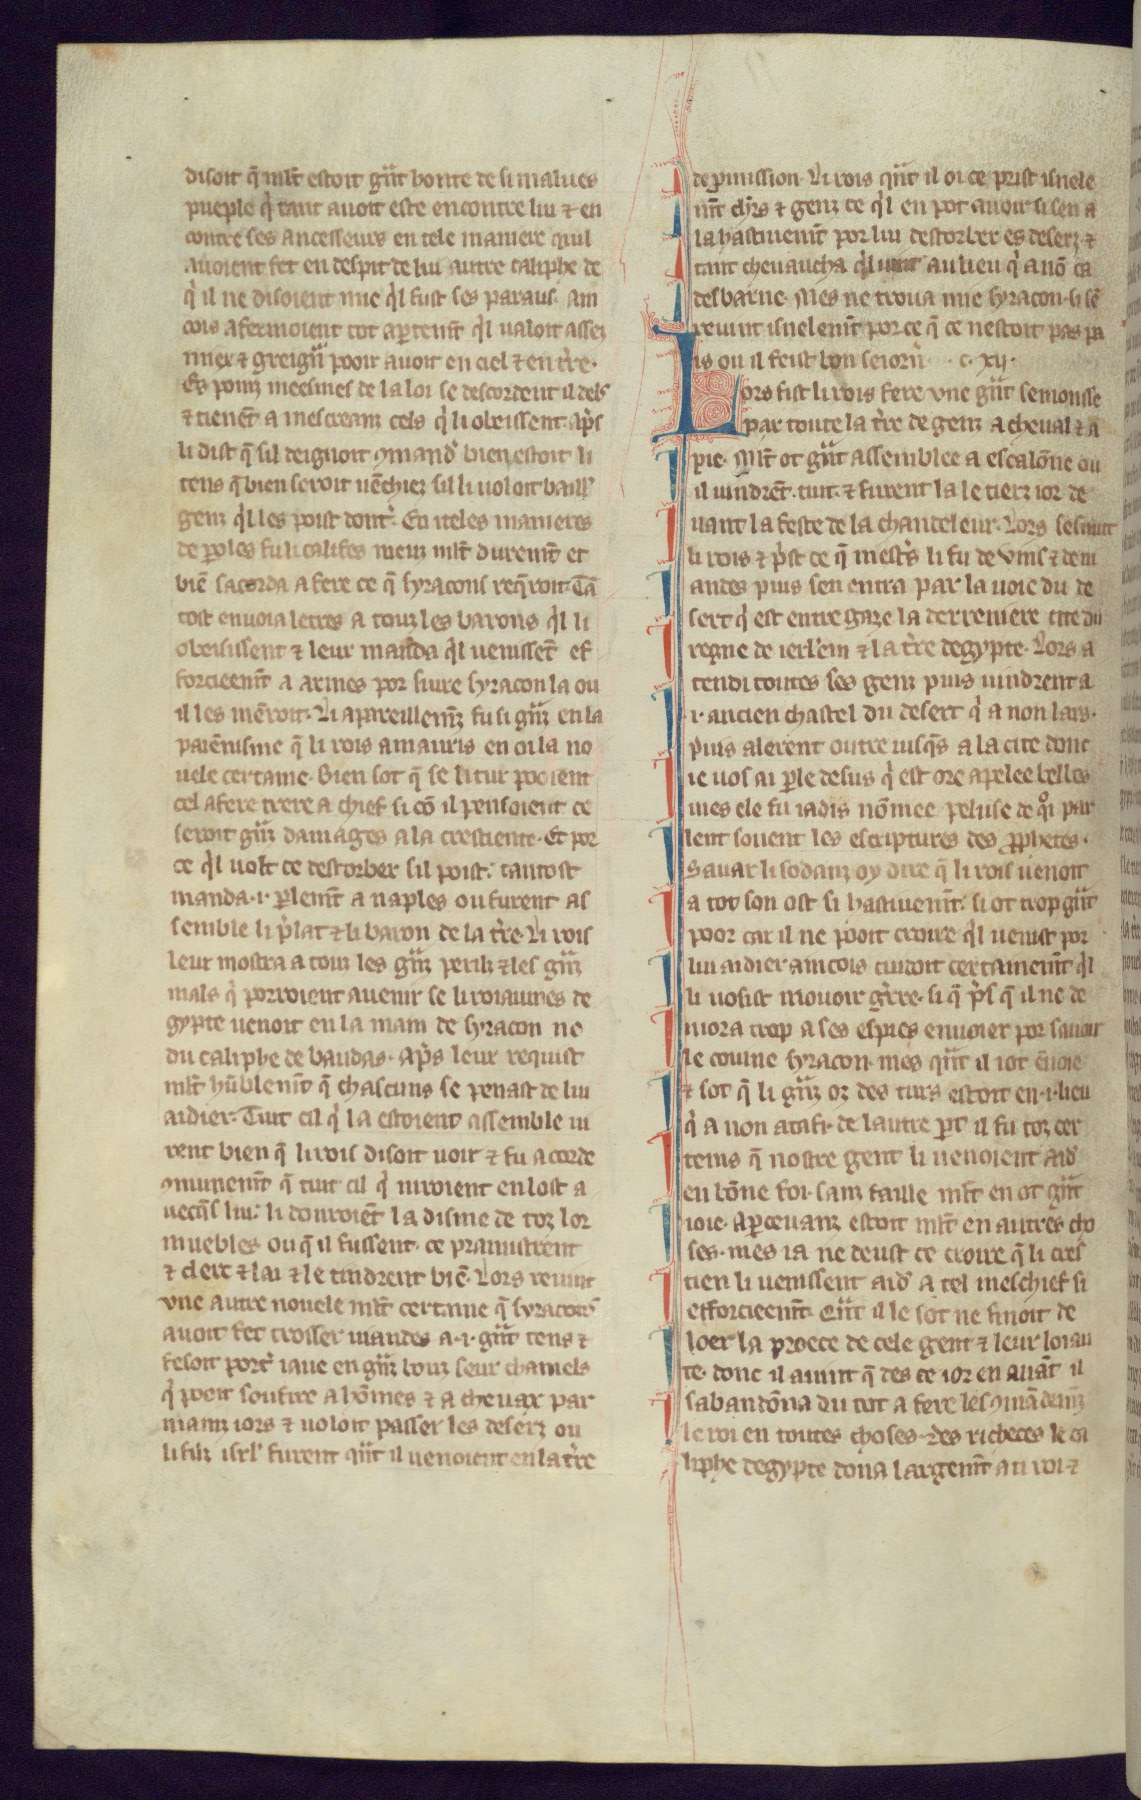 disoit q̄ mlt̄ estoit gr̄nt honte de si malues
pueple q̇ tant auoit este encontre lui ⁊ en
contre ses ancesseurs en tele maniere quil
auoient fet en despit de lui autre caliphe de
q̇ il ne disoient mie q̇l fust ses paraus. ain
cois afermoient tot apertenīt q̇l ualoit assez
miex ⁊ greign̄r pooir auoit en ciel ⁊ en tr̄re.
Es poinz meesmes de la loi se descordent il dels
⁊ tienēt a mescreanz cels q̇ li obeissent. ap̄s
li dist q̄ sil deignoit ꝯmand̄ bien estoit li
tens q̄ bien seroit uēchiez sil li uoloit baill̄
genz q̇l les poist dont̄. En iteles manieres
de ꝑoles fu li califes meuz mlt̄ durem̄t et
biē sacorda a fere ce q̄ syracons req̄roit. Tā
tost enuoia letres a touz les barons q̇l li
obeisissent ⁊ leur manda q̇l uenissēt ef
forcieem̄t a armes por siure syracon la ou
il les mēroit. Li apareillem̄z fu si gr̄nz en la
paiēnisme q̄ li rois amauris en oi la no
uele certaine. Bien sot q̄ se li tur pooient
cel afere trere a chief si cō il pensoient ce
seroit gr̄nz damages a la crestiente. Et por
ce q̇l uolt ce destorber sil poist. tantost
manda .i. ꝑlem̄t a naples ou furent as
semble li p̄lat ⁊ li baron de la tr̄re. Li rois
leur mostra a touz les gr̄nz periz ⁊ les gr̄nz
mals q̇ porroient auenir se li roiaumes de
gypte uenoit en la main de syracon ne
du caliphe de baudas. ap̄s leur requist
mlt̄ hūblem̄t q̄ chascuns se penast de lui
aidier. Tuit cil q̇ la estoient assemble ui
rent bien q̄ li rois disoit uoir ⁊ fu acorde
ꝯmunem̄t q̄ tuit cil q̇ niroient en lost a
uecq̄s lui. li donroiēt la disme de toz lor
muebles ou q̄ il fussent. ce pramistrent
⁊ clerc ⁊ lai ⁊ le tindrent biē. Lors reuint
vne autre nouele mlt̄ certaine q̄ syracons
auoit fet trosser uiandes a .i. gr̄nt tens ⁊
fesoit port̄ iaue en gr̄nz bouz seur chamels
q̇ pooit soufire a hōmes ⁊ a cheuax par
mainz iors ⁊ uoloit passer les deserz ou
li filz isrl̄ furent qn̄t il uenoient en la tr̄re
de ꝓmission. Li rois qn̄t il oi ce prist isnele
m̄t ch̄rs ⁊ genz ce q̇l en pot auoir si sen a
la hastiuem̄t por lui destorber es deserz ⁊
tant cheuaucha q̇l uint au lieu q̇ a nō ca
desbarne. Mes ne troua mie syracon. si sē
reuint isnelem̄t por ce q̄ ce nestoit pas pa
is ou il feist bon seiorn̄ . c. xij.
Lors fist li rois fere vne gr̄nt semonsse
par toute la tr̄re de genz a cheual ⁊ a
pie. Mlt̄ ot gr̄nt assemblee a escalōne ou
il uindrēt. tuit. ⁊ furent la le tierz ior de
uant la feste de la chandeleur. Lors sesmut
li rois ⁊ p̄st ce q̄ mest̄s li fu de vins ⁊ de ui
andes puis sen entra par la uoie du de
sert q̇ est entre gaze la derreniere cite du
regne de ierl̄em ⁊ la tr̄re degypte. Lors a
tendi toutes ses genz puis uindrent a
.i. ancien chastel du desert q̇ a non lars.
puis alerent outre iusq̄s a la cite dont
ie uos ai ꝑle desus q̇ est ore apelee belles
mes ele fu iadis nōmee peluse de q̇i par
lent souent les escriptures des ꝓphetes.
Sauar li sodanz oy dire q̄ li rois uenoit
a tot son ost si hastiuem̄t. si ot trop gr̄nt
poor car il ne pooit croire q̇l uenist por
lui aidier aincois cuidoit certainem̄t q̇l
li uosist mouoir gr̄re. si q̄ p̄s q̄ il ne de
mora trop a ses espies enuoier por sauoir
le couine syracon. mes qn̄t il i ot ēuoie
⁊ sot q̄ li gr̄nz oz des turs estoit en .i. lieu
q̇ a non atafi. de lautre ꝑt il fu toz cer
teins q̄ nostre gent li uenoient aid̄
en bōne foi. sanz faille mlt̄ en ot gr̄nt
ioie. Aꝑceuanz estoit mlt̄ en autres cho
ses. mes ia ne deust ce croire q̄ li cres
tien li uenissent aid̄ a tel meschief si
efforcieem̄t. Qn̄t il le sot ne finoit de
loer la proece de cele gent ⁊ leur loiau
te. donc il auint q̄ des ce ior en auāt il
sabandōna du tot a fere les ꝯmādem̄z
le roi en toutes choses. des richeces le ca
liphe degypte dona largem̄t au roi ⁊